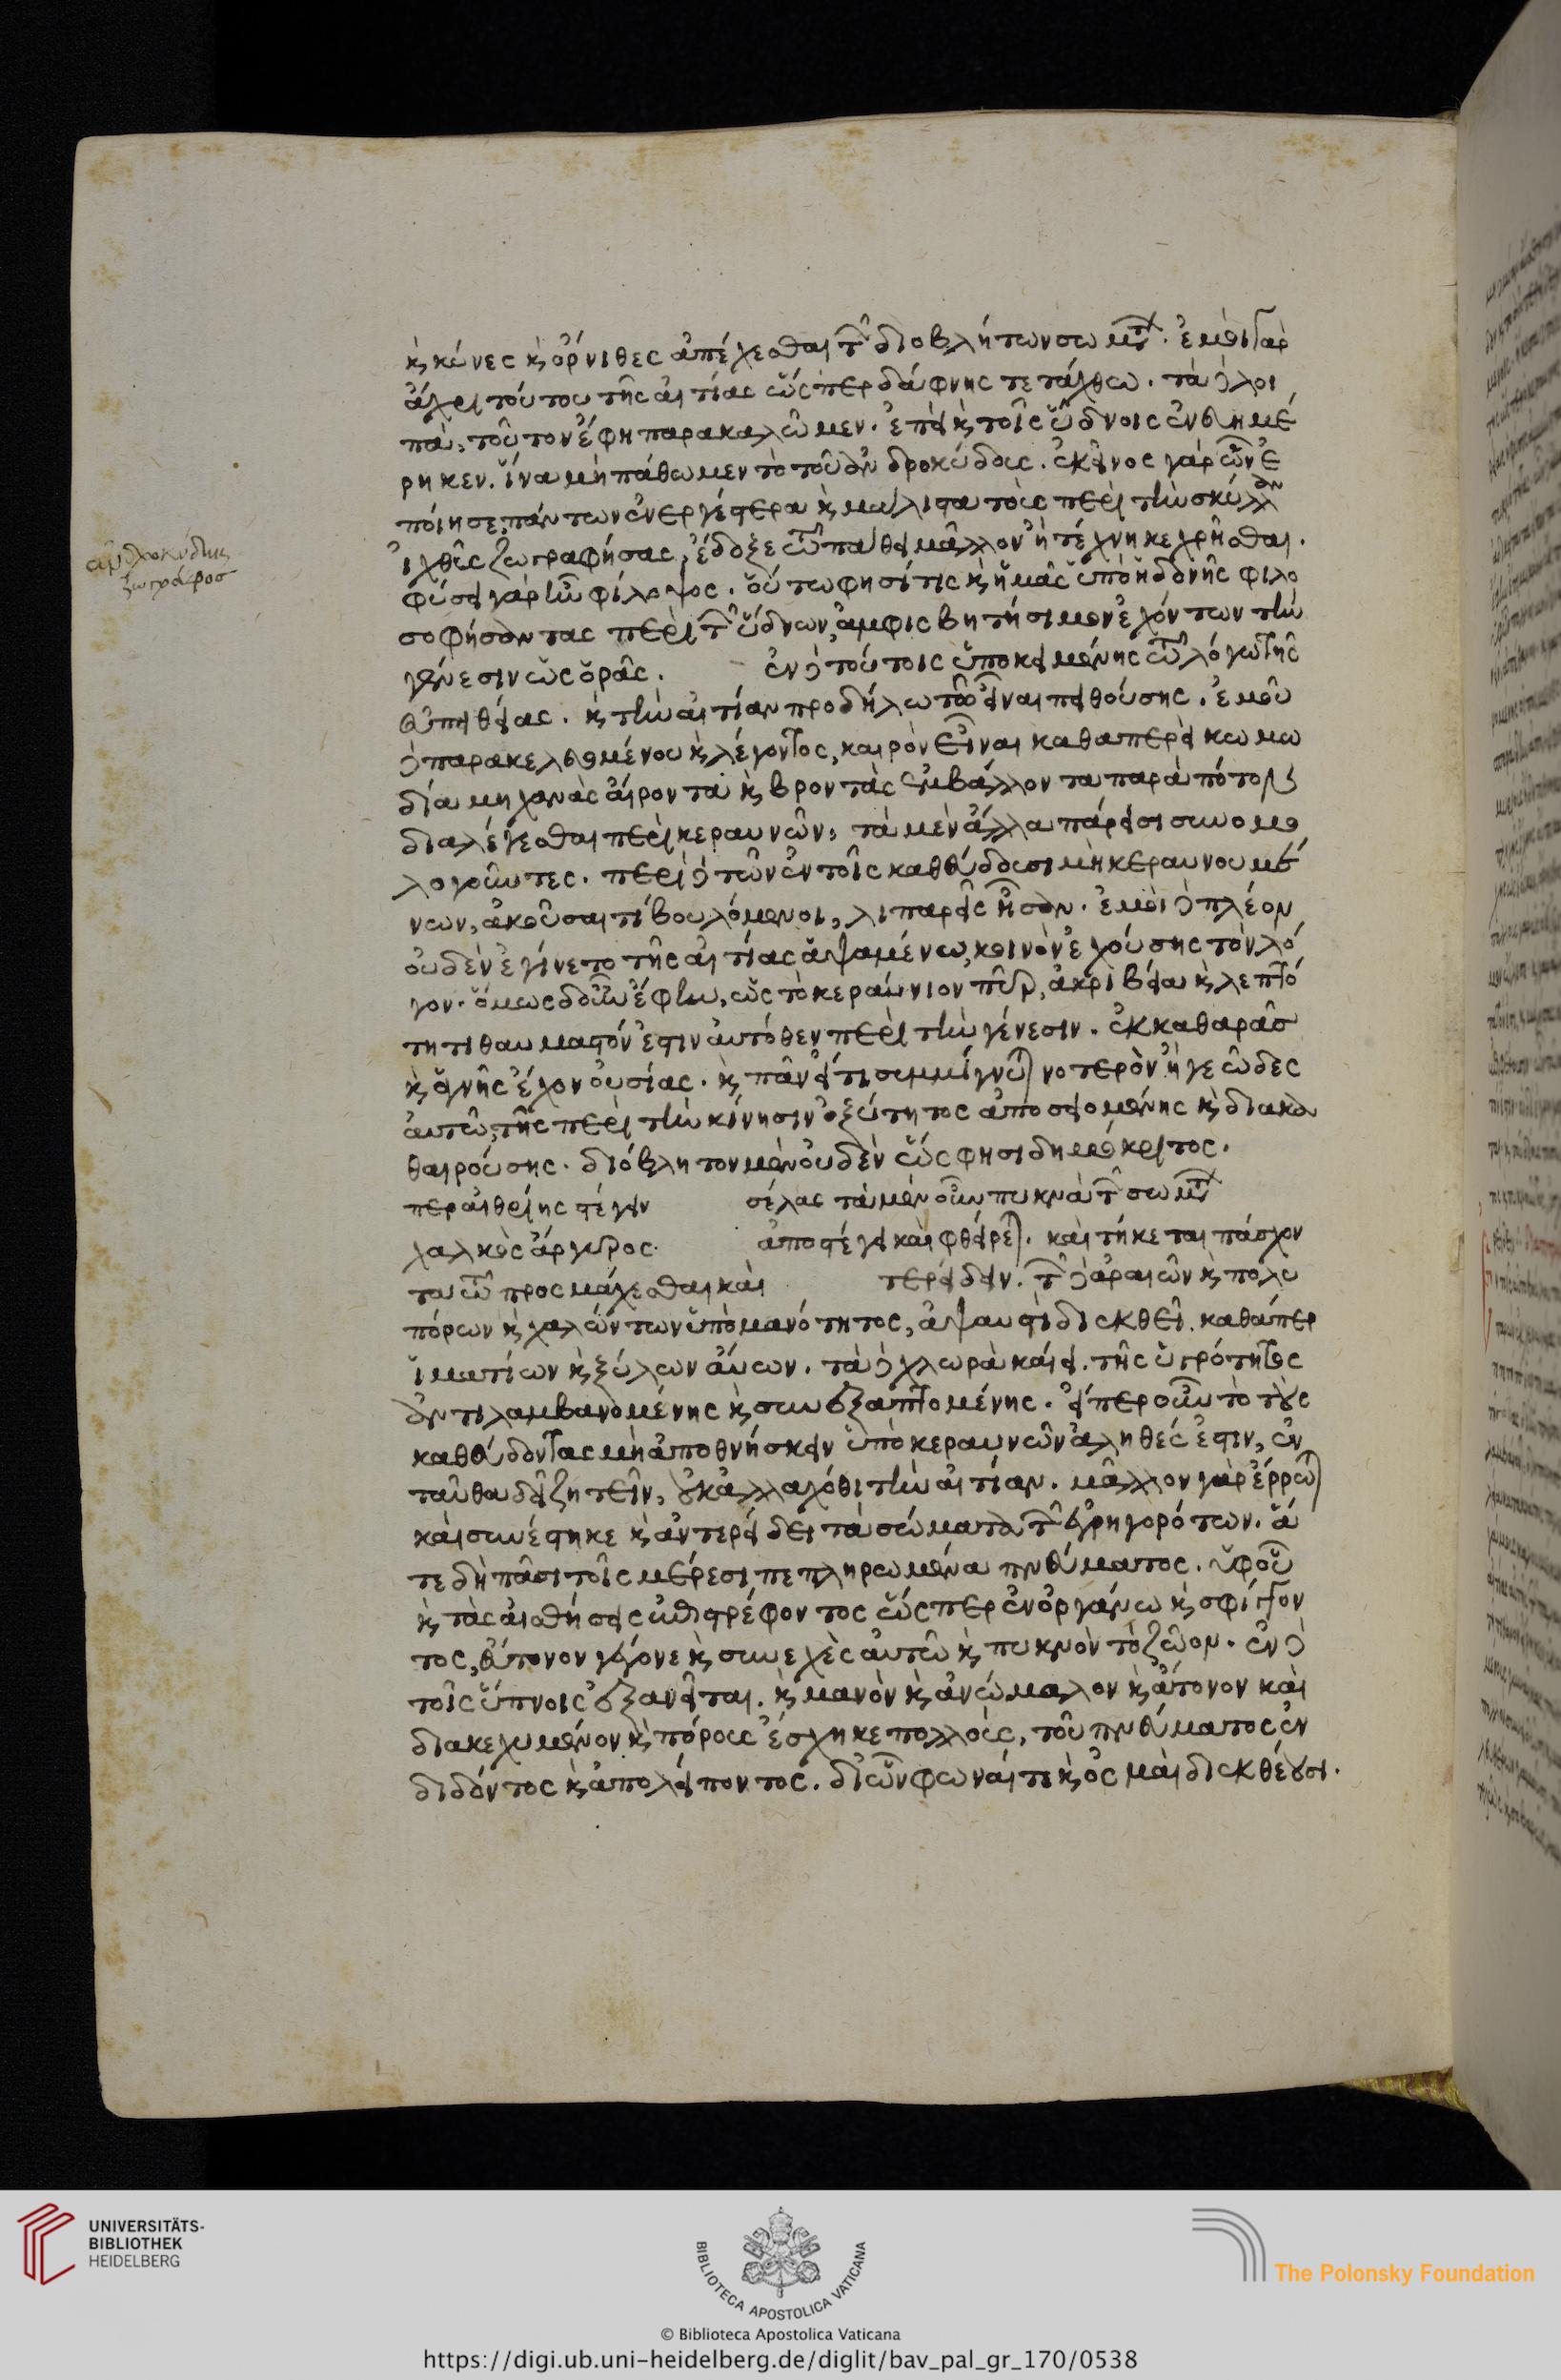 κ κύνες κ ὄρνιθες ἀπέχεσθαι τ διοβλήτων σωμτ. ἐμοὶ γαρ
ἄχρι τούτου τῆς αἰτίας ὥσπερ δάφνης τετάχθω. τὰ δὲ λοι
πὰ, τοῦτον ἔφη παρακαλῶμεν. ἐπεὶ κ τοῖς ὕδνοις ἐνευημέ
ρηκεν. ἵνα μὴ πάθωμεν τὸ τοῦ ἀνδροκύδους. ἐκεῖνος γὰρ ὧν ἐ
ποίησε πάντων ἐνεργέστερα κ μάλιστα τοὺς περὶ τὴν σκύλλαν
ἰχθῦς ζωγραφήσας, ἔδοξε τῶ πάθει μᾶλλον ἢ τέχνη κεχρῆσθαι.
φύσει γὰρ ἦν φίλοψος. οὕτω φησί τις κ ἡμᾶς ὑπὸ ἡδονῆς φιλο
σοφήσαντας περὶ τ ὕδνων, ἀμφισβητήσιμον ἐχόντων τὴν
γένεσιν ὡς ὁρᾶς. ἐν δὲ τούτοις ὑποκειμένης τῶ λόγω τῆς
εὐπειθείας. κ τὴν αἰτίαν προδήλω εἶναι πειθούσης. ἐμοῦ
δὲ παρακελευομένου κ λέγοντος, καιρὸν εἶναι καθαπερεὶ κωμω
δία μηχανὰς αἴροντα κ βροντὰς ἐμβάλλοντα παρὰ πότον
διαλέγεσθαι περὶ κεραυνῶν, τὰ μὲν ἄλλα πάρεισι συνομο
λογοῦντες. περὶ δὲ τῶν ἐν τοῖς καθεύδουσι μὴ κεραυνουμέ
νων, ἀκοῦσαί τι βουλόμενοι, λιπαρεῖς ἦσαν. ἐμοὶ δὲ πλέον
οὐδὲν ἐγίνετο τῆς αἰτίας ἁψαμένω, κοινὸν ἐχούσης τὸν λό
γον. ὅμως δ οὖν ἔφην, ὡς τὸ κεραύνιον πῦρ, ἀκριβεία κ λεπτό
τητι θαυμαστόν ἐστιν αὐτόθεν περὶ τὴν γένεσιν. ἐκ καθαρᾶσ
κ ἁγνῆς ἔχον οὐσίας. κ πᾶν εἴ τι συμμίγνυται νοτερὸν ἢ γεῶδες
αὐτῶ, τῆς περὶ τὴν κίνησιν ὀξύτητος ἀποσειομένης κ διακα
θαιρούσης. διόβλητον μὲν οὐδὲν ὥς φησι δημόκριτος.
περ αἰθρίης στέγειν σέλας τὰ μὲν οὖν πυκνὰ τ σωμτ
χαλκὸς ἄργυρος. ἀποστέγει καὶ φθείρεται. καὶ τήκεται πάσχον
τα τῶ προσμάχεσθαι καὶ τερείδειν. τ δὲ ἀραιῶν κ πολυ
πόρων κ χαλώντων ὑπὸ μανότητος, ἀψαυστὶ διεκθεῖ. καθάπερ
ἱματίων κ ξύλων αὔων. τὰ δὲ χλωρὰ καίει. τῆς ὑγρότητος
ἀντιλαμβανομένης κ συνεξαπτομένης. εἴπερ οὖν τὸ τοὺς
καθεύδοντας μὴ ἀποθνήσκειν ὑπὸ κεραυνῶν ἀληθές ἐστιν, ἐν
ταῦθα δεῖ ζητεῖν, οὐκ ἀλλαχόθι τὴν αἰτίαν. μᾶλλον γὰρ ἔρρωται
καὶ συνέστηκε κ ἀντερείδει τὰ σώματα τ ἐγρηγορότων. ἅ
τε δὴ πᾶσι τοῖς μέρεσι πεπληρωμένα πνεύματος. ὑφ οὗ
κ τὰς αἰσθήσεις ἐπιστρέφοντος ὥσπερ ἐν ὀργάνω κ σφίγγον
τος, εὔτονον γέγονε κ συνεχὲς αὐτῶ κ πυκνὸν τὸ ζῶον. ἐν δὲ
τοῖς ὕπνοις ἐξανεῖται. κ μανὸν κ ἀνώμαλον κ ἄτονον καὶ
διακεχυμένον κ πόρους ἔσχηκε πολλοὺς, τοῦ πνεύματος ἐν
διδόντος κ ἀπολείποντος. δι ὧν φωναί τε κ ὀσμαὶ διεκθέουσι.
ἀνδροκύδης
ζωγράφοσ
UNIVERSITÄTS-
BIBLIOTHEK
HEIDELBERG
BIBLIOTECA APOSTOLICA VATICANA
The Polonsky Foundation
© Biblioteca Apostolica Vaticana
https://digi.ub.uni-heidelberg.de/diglit/bav_pal_gr_170/0538